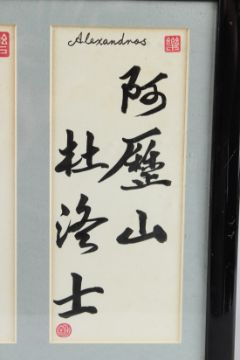 Alexandros
阿歷山
杜洛士